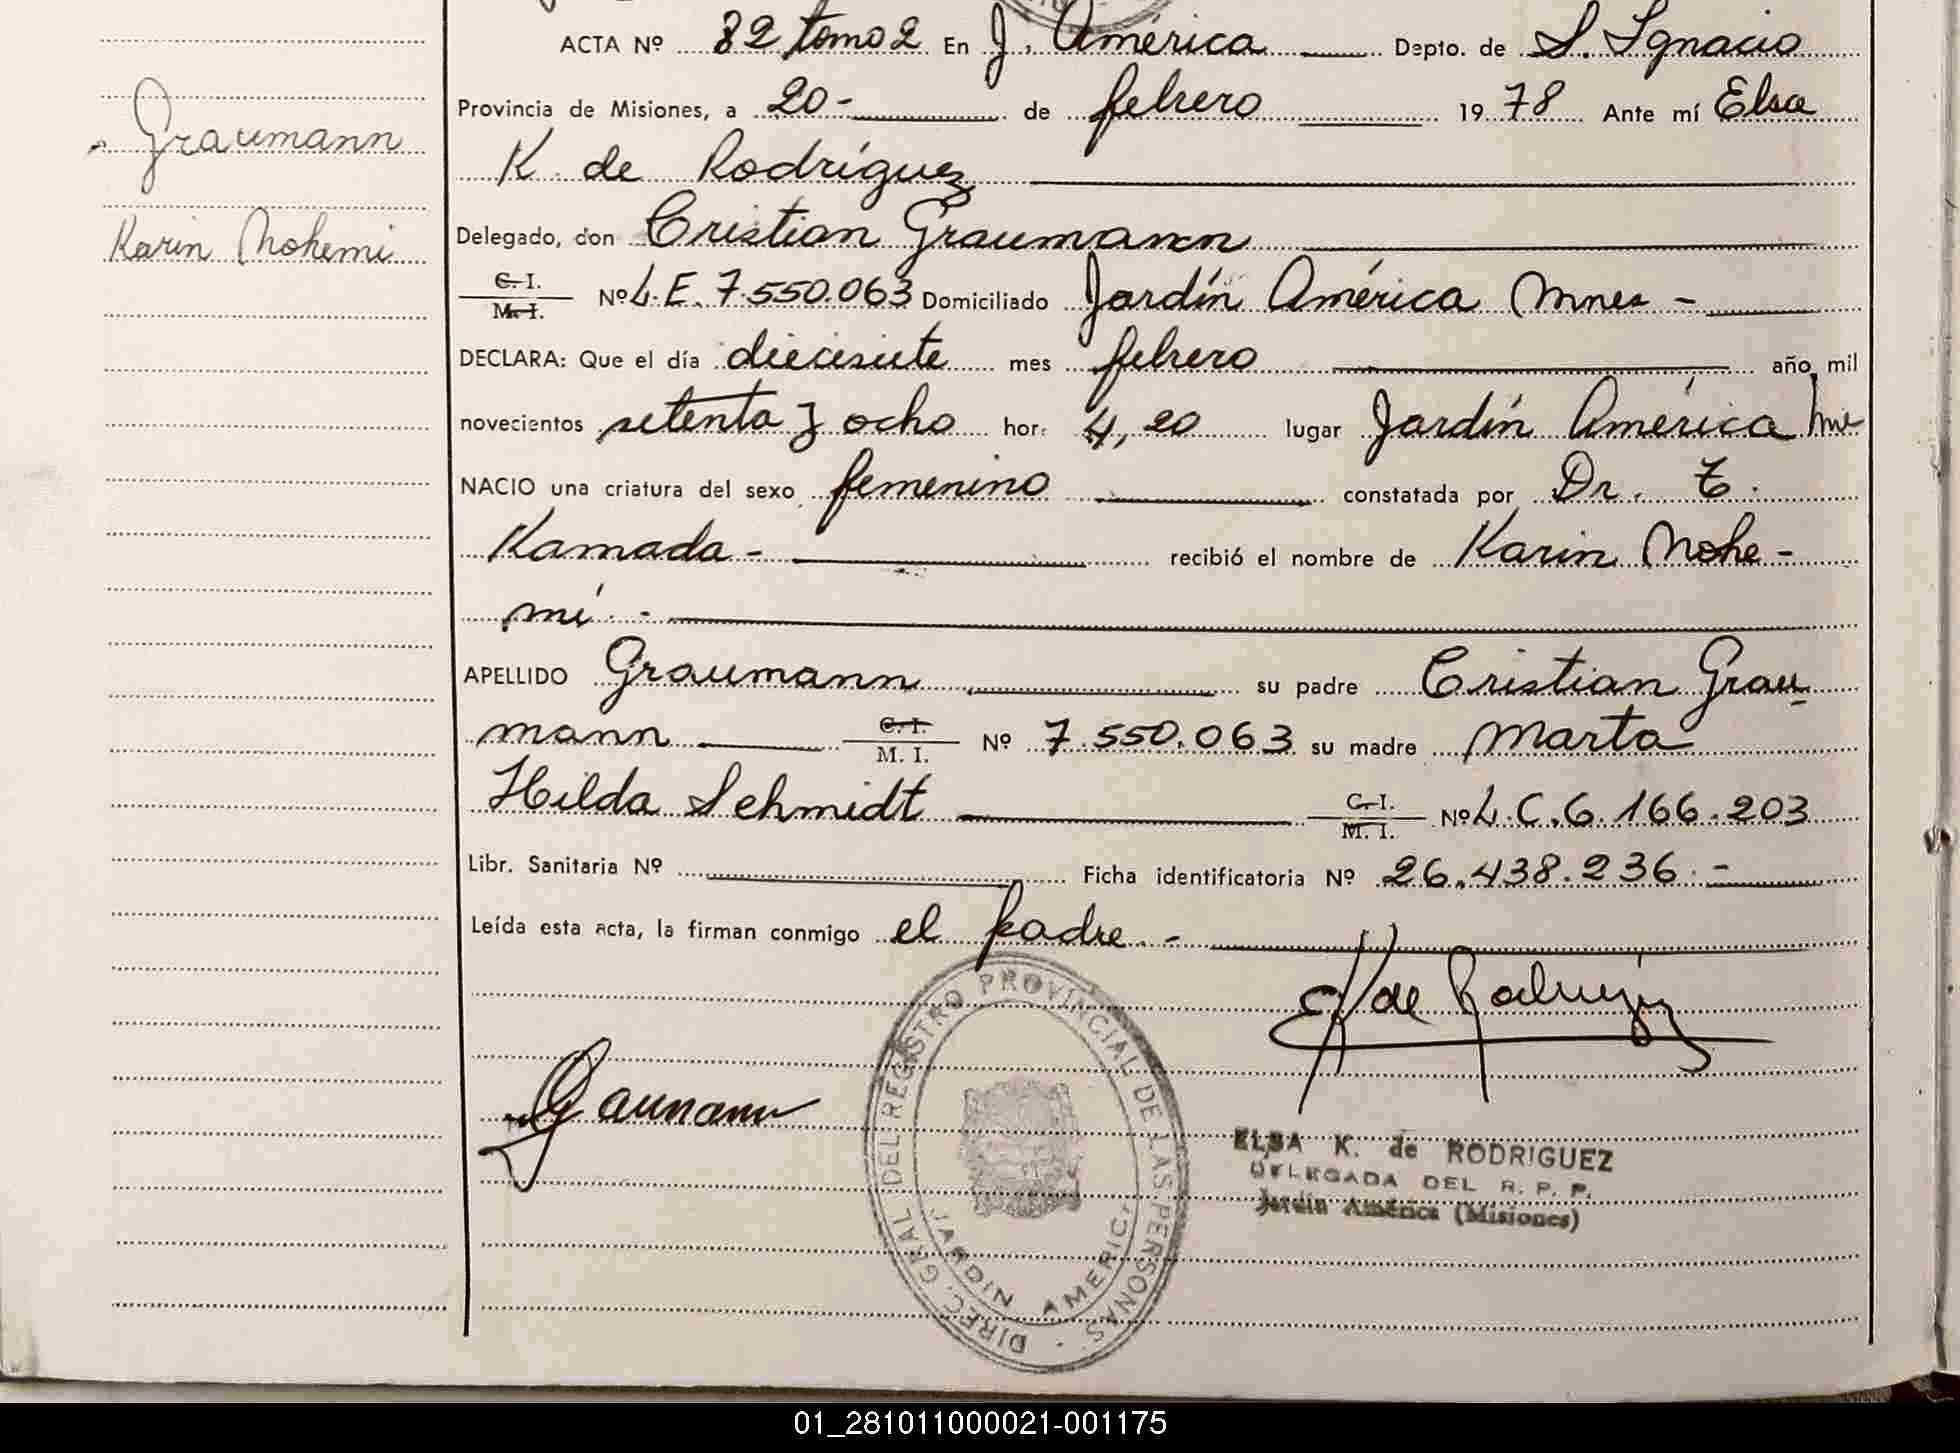 ACTA Nº 82 tomo 2 En J. América Depto. de S. Ignacio
Provincia de Misiones, a 20- de febrero 1978 Ante mí Elsa
K. de Rodríguez
Delegado, don Cristian Graumann
C. I.
M. I.
Nº L.E. 7.550.063 Domiciliado Jardín América Mnes -
DECLARA: Que el día diecisiete mes febrero año mil
novecientos setenta y ocho hor: 4,20 lugar Jardín América
NACIO una criatura del sexo femenino constatada por Dr. T.
Kamada - recibió el nombre de Karin Nohe-
mí. -
APELLIDO Graumann su padre Cristian Grau
mann C. I. M. I. Nº 7.550.063 su madre Marta
Hilda Schmidt C. I. M. I. Nº L.C. 6.166.203
Libr. Sanitaria Nº Ficha identificatoria Nº 26.438.236. -
Leída esta acta, la firman conmigo el padre. -
Graumann
Karin Nohemi
E K de Rodríguez
Graumann
DIREC. GRAL DEL REGISTRO PROVINCIAL DE LAS PERSONAS.
JARDIN AMERICA
ELSA K. de RODRIGUEZ
DELEGADA DEL R. P. P.
Jardín América (Misiones)
01_281011000021-001175